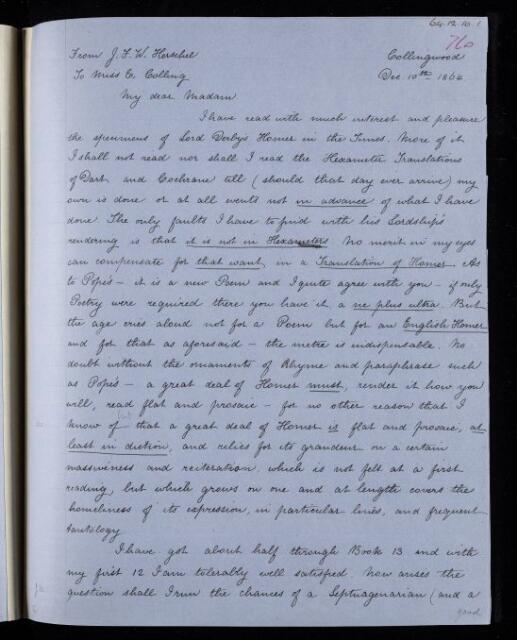 64.12.10.1
760
From J. F. W. Herschel
Collingwood
To Miss C. Colling
Dec. 10th 1864
My dear Madam
I have read with much interest and pleasure
the specimens of Lord Derby's Homer in the Times. More of it
I shall not read nor shall I read the Hexameter Translations
of Dart and Cochrane till (should that day ever arrive) my
own is done or at all events not in advance of what I have
done. The only faults I have to find with his Lordship's
rendering is that it is not in Hexameters. No merit in my eyes
can compensate for that want in a Translation of Homer. As
to Pope's – it is a new Poem and I quite agree with you – if only
Poetry were required there you have it a ne plus ultra. But
the age cries aloud not for a Poem but for an English Homer
and for that as aforesaid – the metre is indispensable. No
doubt without the ornaments of Rhyme and paraphrase such
as Pope's – a great deal of Homer must, render it how you
will, read flat and prosaic – for no other reason that I
know of – that a great deal of Homer is flat and prosaic, at
least in diction, and relies for its grandeur on a certain
massiveness and reiteration which is not felt at a first
reading, but which grows on one and at length covers the
homeliness of its expression, in particular lines, and frequent
tautology
I have got about half through Book 13 and with
my first 12 I am tolerably well satisfied. Now arises the
question shall I run the chances of a Septuagenarian (and a
good